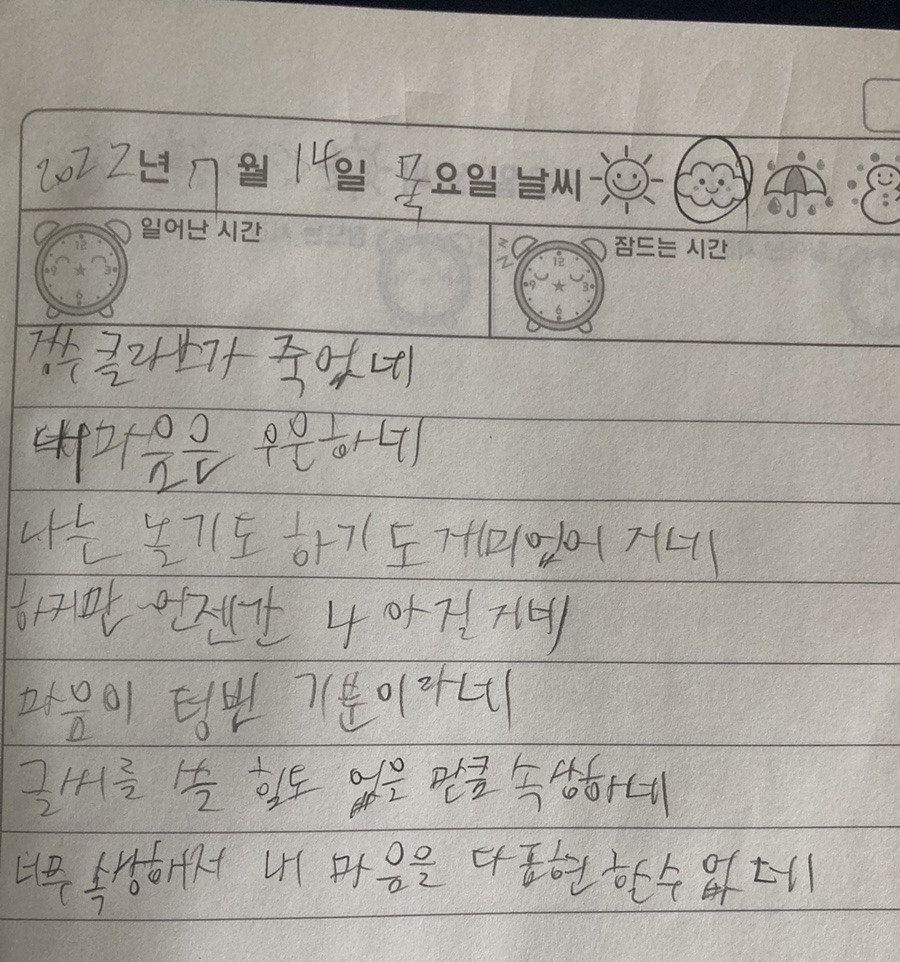 2022년 7월 14일 목요일 날씨
일어난 시간 잠드는 시간
12 3 6 9 12 3 6 9
z z z
장수 클라브가 죽었네
내 마음은 우울하네
나는 놀기도 하기도 게미없어 지네
하지만 언젠간 나아질 거네
마음이 텅빈 기분이라네
글씨를 쓸 힘도 없을 만큼 속상하네
너무 속상해서 내 마음을 다 표현 할 수 없네